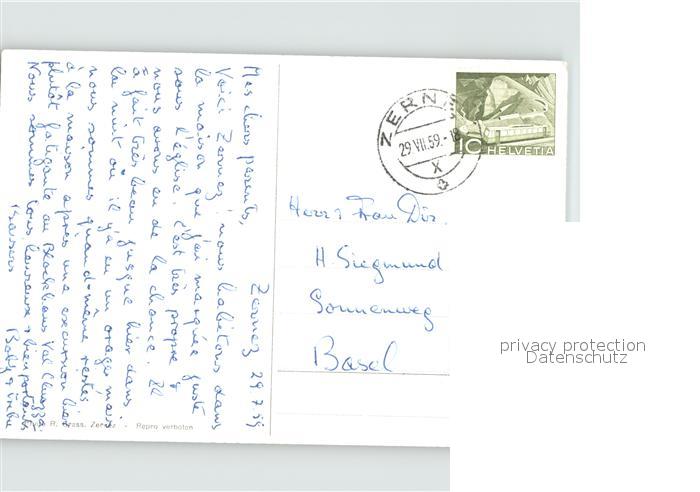 Zernez 29.7.59
Mes chers parents,
Voici Zernez! nous habitons dans
la maison que j'ai marquée juste
sous l'église. C'est très propre &
nous avons eu de la chance. Il
a fait très beau jusque hier dans
la nuit où il y a eu un orage, mais
nous sommes quand-même restés
à la maison après une excursion hier
plutôt fatigante au Blockhaus Val Cluozza.
Nous sommes tous heureux & bien portants
Baisers
ZERNEZ
29.VII.59.-18
X
10 HELVETIA
Herr & Frau Dir.
H. Siegmund
Sonnenweg
Basel
R. Grass, Zernez - Repro verboten
privacy protection
Datenschutz